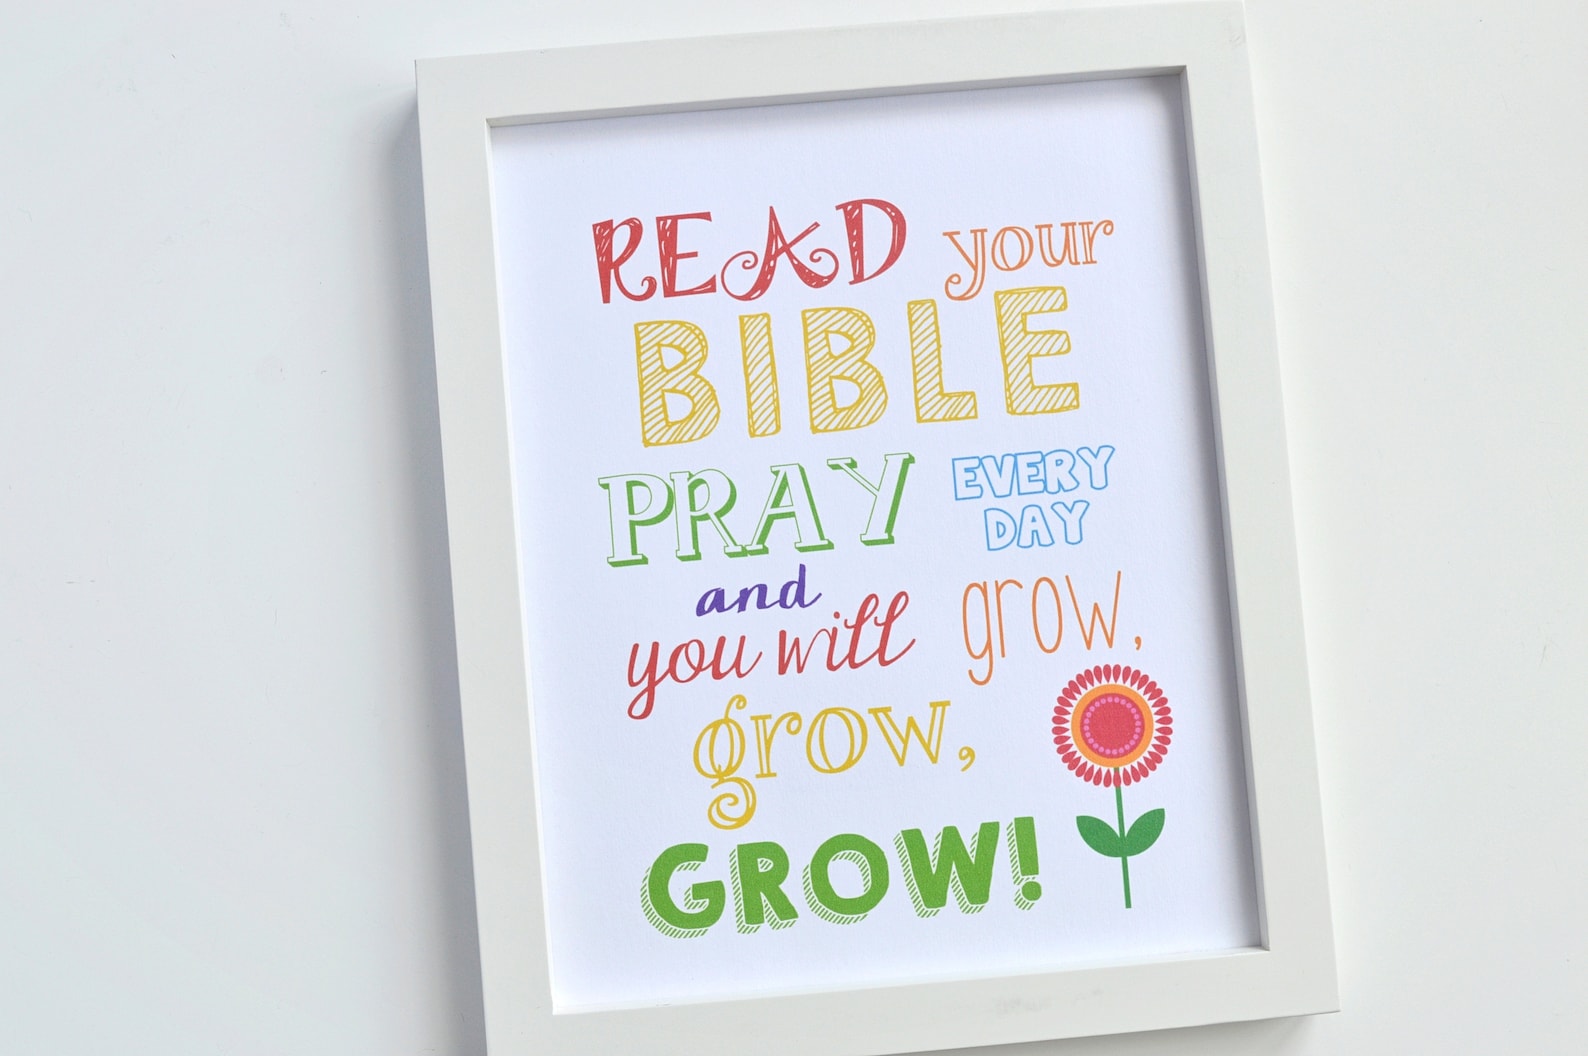 READ your
BIBLE
PRAY EVERY
DAY
and
you will grow,
grow,
GROW!